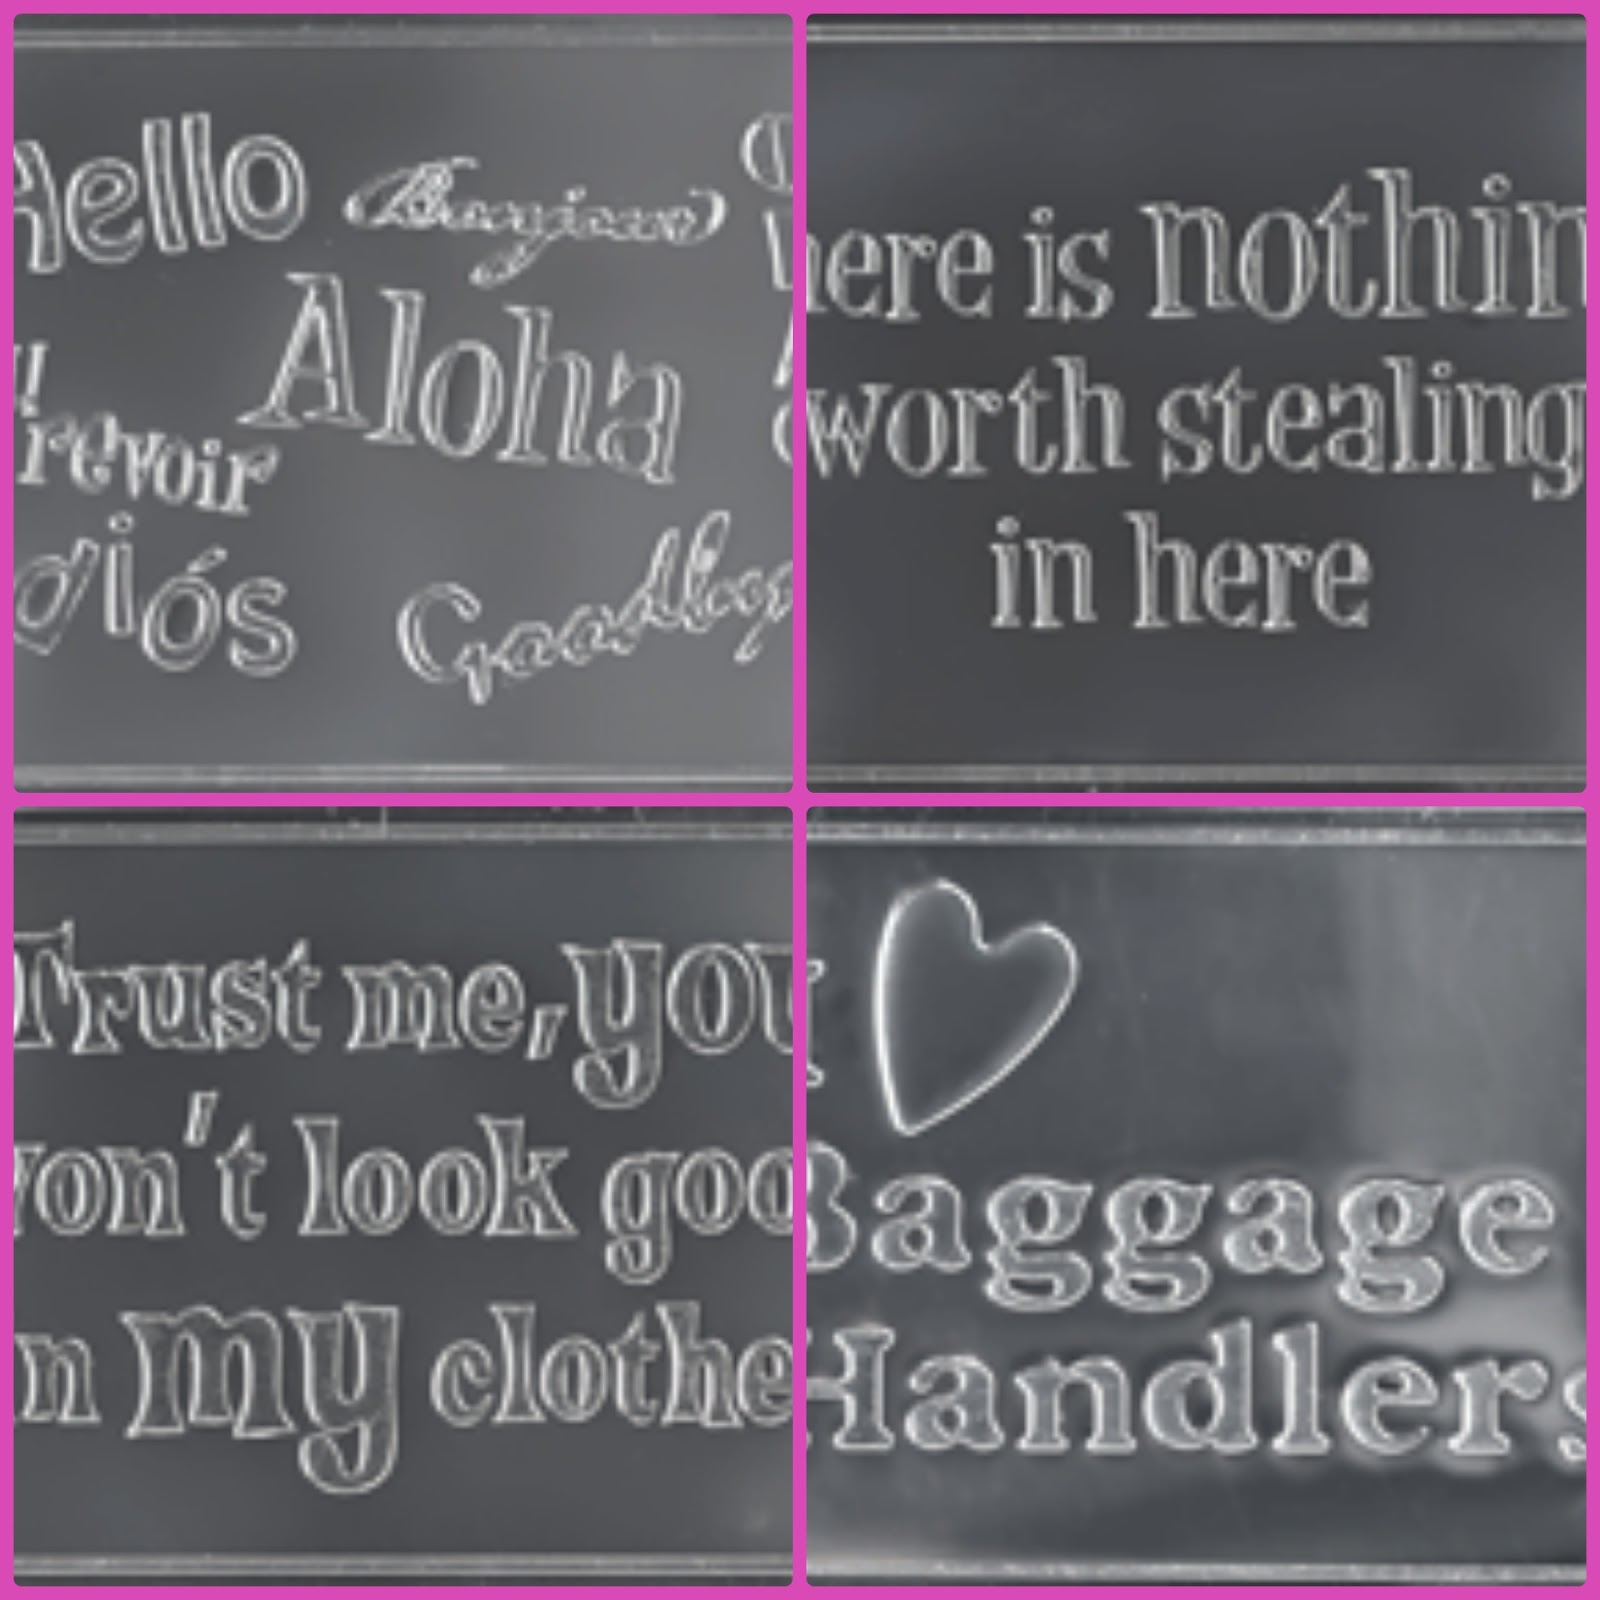 Hello Bonjour
Aloha
revoir
diós Goodbye
here is nothin
worth stealing
in here
Trust me, you
won't look goo
in my clothe
I
Baggage
Handlers